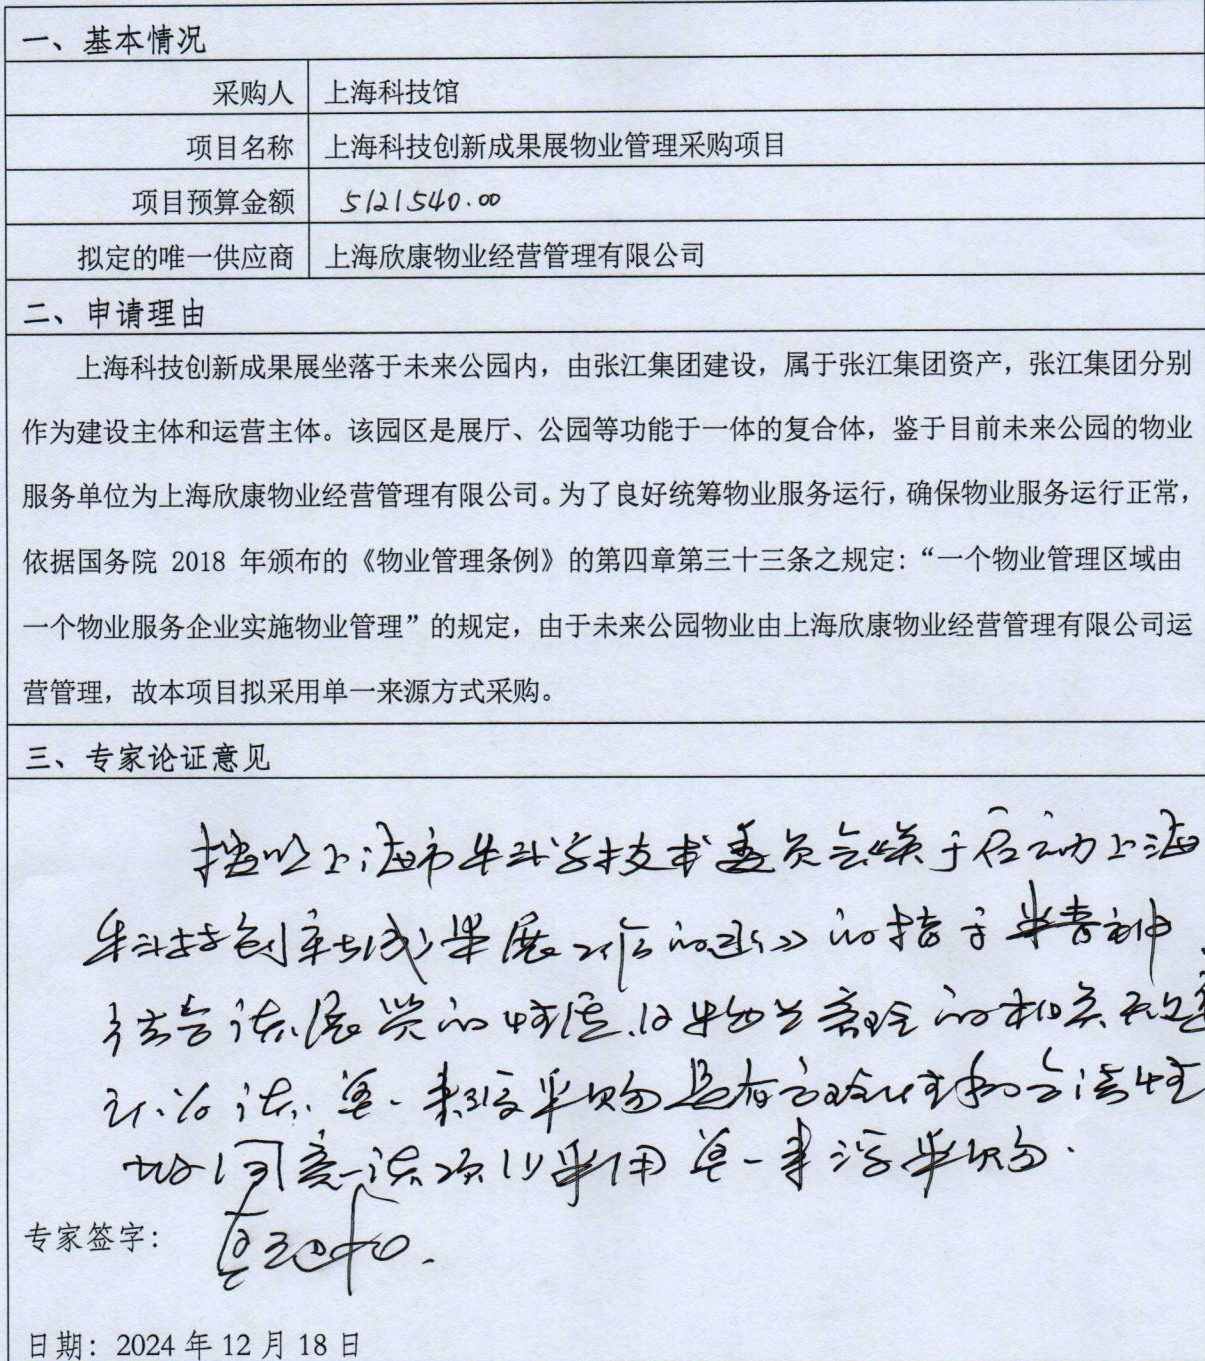 一、基本情况
采购人 上海科技馆
项目名称 上海科技创新成果展物业管理采购项目
项目预算金额 5121540.00
拟定的唯一供应商 上海欣康物业经营管理有限公司
二、申请理由
上海科技创新成果展坐落于未来公园内，由张江集团建设，属于张江集团资产，张江集团分别
作为建设主体和运营主体。该园区是展厅、公园等功能于一体的复合体，鉴于目前未来公园的物业
服务单位为上海欣康物业经营管理有限公司。为了良好统筹物业服务运行，确保物业服务运行正常，
依据国务院 2018 年颁布的《物业管理条例》的第四章第三十三条之规定：“一个物业管理区域由
一个物业服务企业实施物业管理”的规定，由于未来公园物业由上海欣康物业经营管理有限公司运
营管理，故本项目拟采用单一来源方式采购。
三、专家论证意见
上海市科学技术委员会《关于启动上海
科技创新成果展工作的函》的指示精神
结合该展览的性质及物业管理的相关
认为该单一来源采购具有 和合法性
同意该项目采用单一来源采购.
专家签字：
日期：2024 年 12 月 18 日